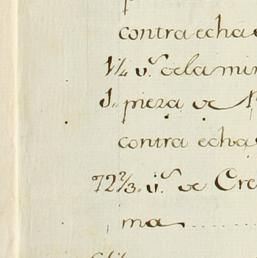 contraecha
1¼ v.s dela mi
1. pieza de
contra echa
72⅔ v.s de Cre
ma